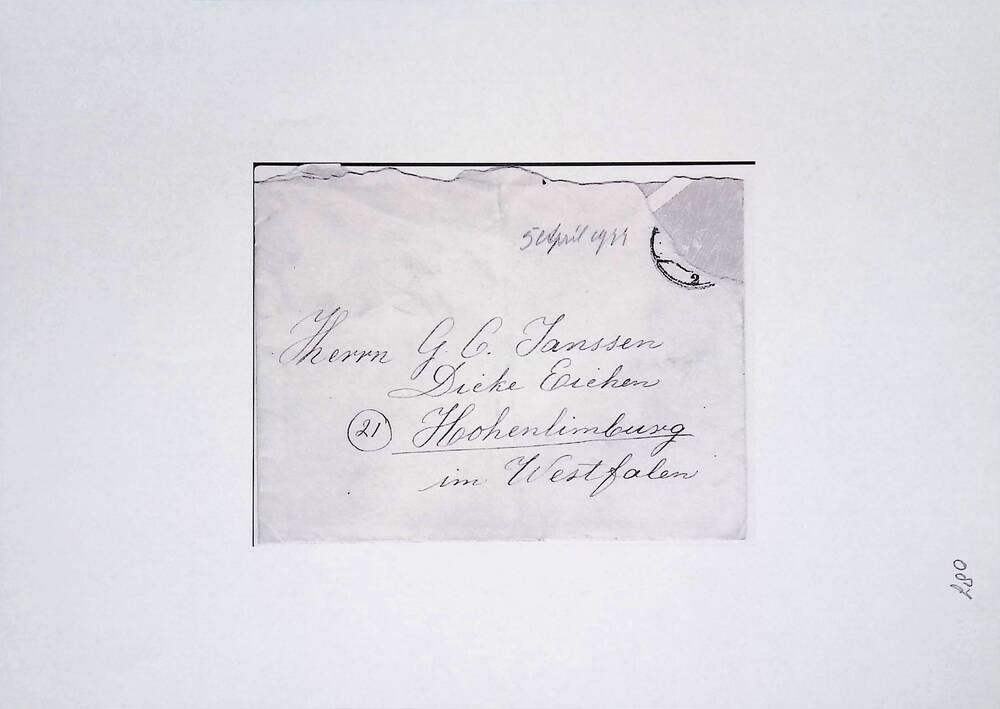 5 April 1944
2
Herrn G. C. Janssen
Dicke Eichen
21 Hohenlimburg
im Westfalen
087